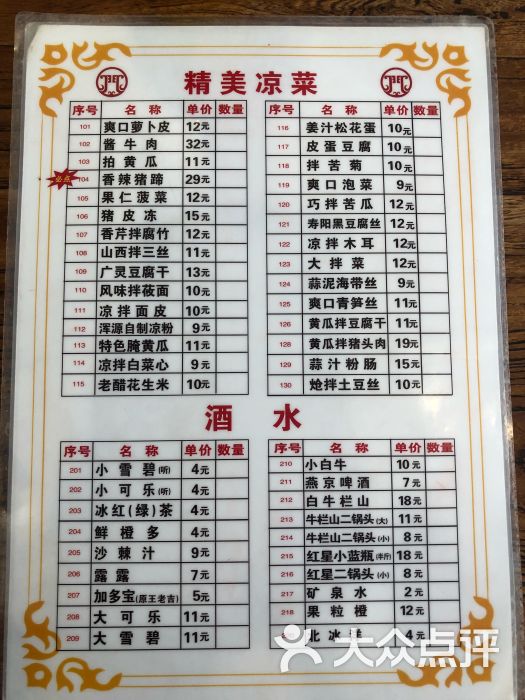 精美凉菜
序号 名称 单价 数量
101 爽口萝卜皮 12元
102 酱牛肉 32元
103 拍黄瓜 11元
必点 104 香辣猪蹄 29元
105 果仁菠菜 12元
106 猪皮冻 15元
107 香芹拌腐竹 12元
108 山西拌三丝 11元
109 广灵豆腐干 13元
110 风味拌莜面 10元
111 凉拌面皮 10元
112 浑源自制凉粉 9元
113 特色腌黄瓜 11元
114 凉拌白菜心 9元
115 老醋花生米 10元
序号 名称 单价 数量
116 姜汁松花蛋 10元
117 皮蛋豆腐 10元
118 拌苦菊 10元
119 爽口泡菜 9元
120 巧拌苦瓜 12元
121 寿阳黑豆腐丝 12元
122 凉拌木耳 12元
123 大拌菜 12元
124 蒜泥海带丝 9元
125 爽口青笋丝 11元
126 黄瓜拌豆腐干 11元
128 黄瓜拌猪头肉 19元
129 蒜汁粉肠 15元
130 炝拌土豆丝 10元
酒水
序号 名称 单价 数量
201 小雪碧(听) 4元
202 小可乐(听) 4元
203 冰红(绿)茶 4元
204 鲜橙多 4元
205 沙棘汁 9元
206 露露 7元
207 加多宝(原王老吉) 5元
208 大可乐 11元
209 大雪碧 11元
序号 名称 单价 数量
210 小白牛 10元
211 燕京啤酒 7元
212 白牛栏山 18元
213 牛栏山二锅头(大) 11元
214 牛栏山二锅头(小) 8元
215 红星小蓝瓶(半斤) 18元
216 红星二锅头(小) 8元
217 矿泉水 2元
218 果粒橙 12元
北冰洋 4元
大众点评